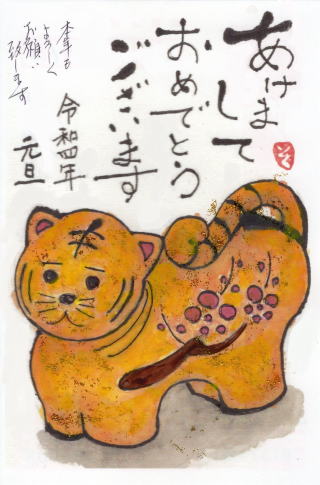 あけまして
おめでとう
ございます
令和四年
元旦
本年も
よろしく
お願い
致します